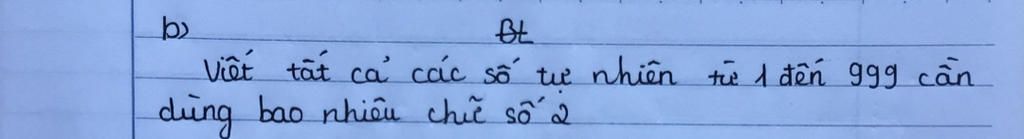 b) Bt
Viết tất cả các số tự nhiên từ 1 đến 999 cần
dùng bao nhiêu chữ số 2